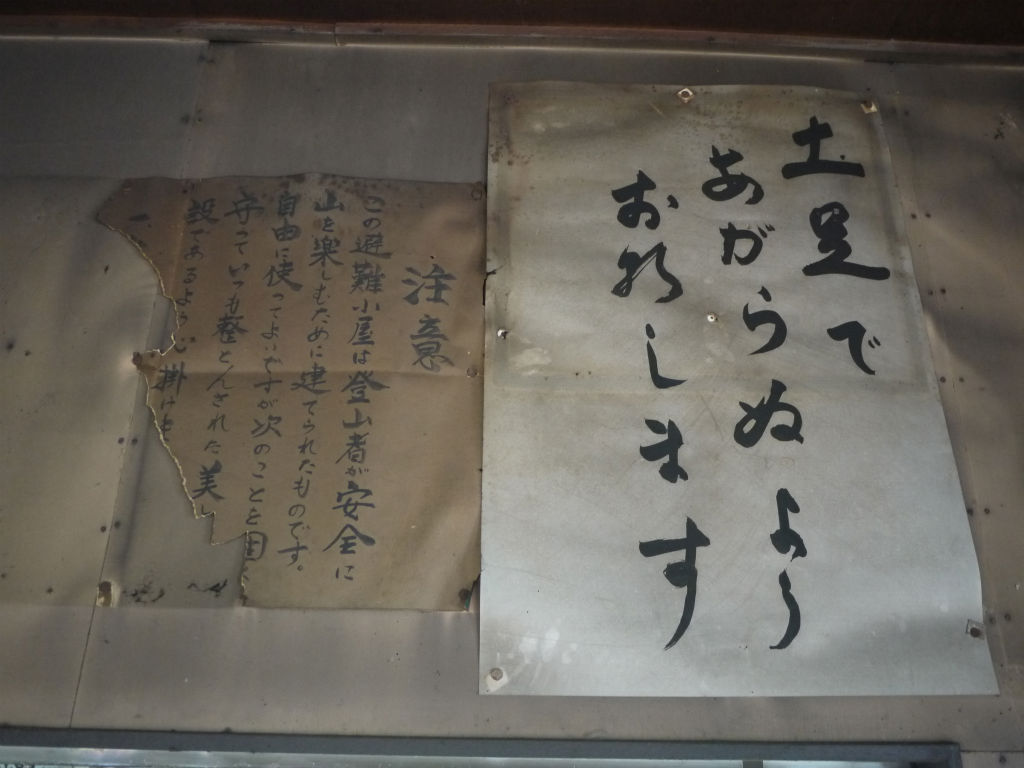 土足で
あがらぬよう
お願いします
注意
この避難小屋は登山者が安全に
山を楽しむために建てられたものです。
自由に使ってよいですが次のことを固
守っていつも整とんされた美し
設であるよう心掛けを
一